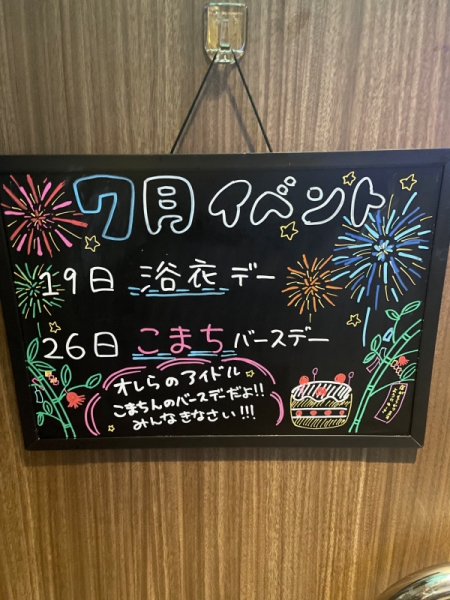 7月イベント
19日 浴衣デー
26日 こまちバースデー
オレらのアイドル
こまちんのバースデーだよ!!
みんなきなさい!!!